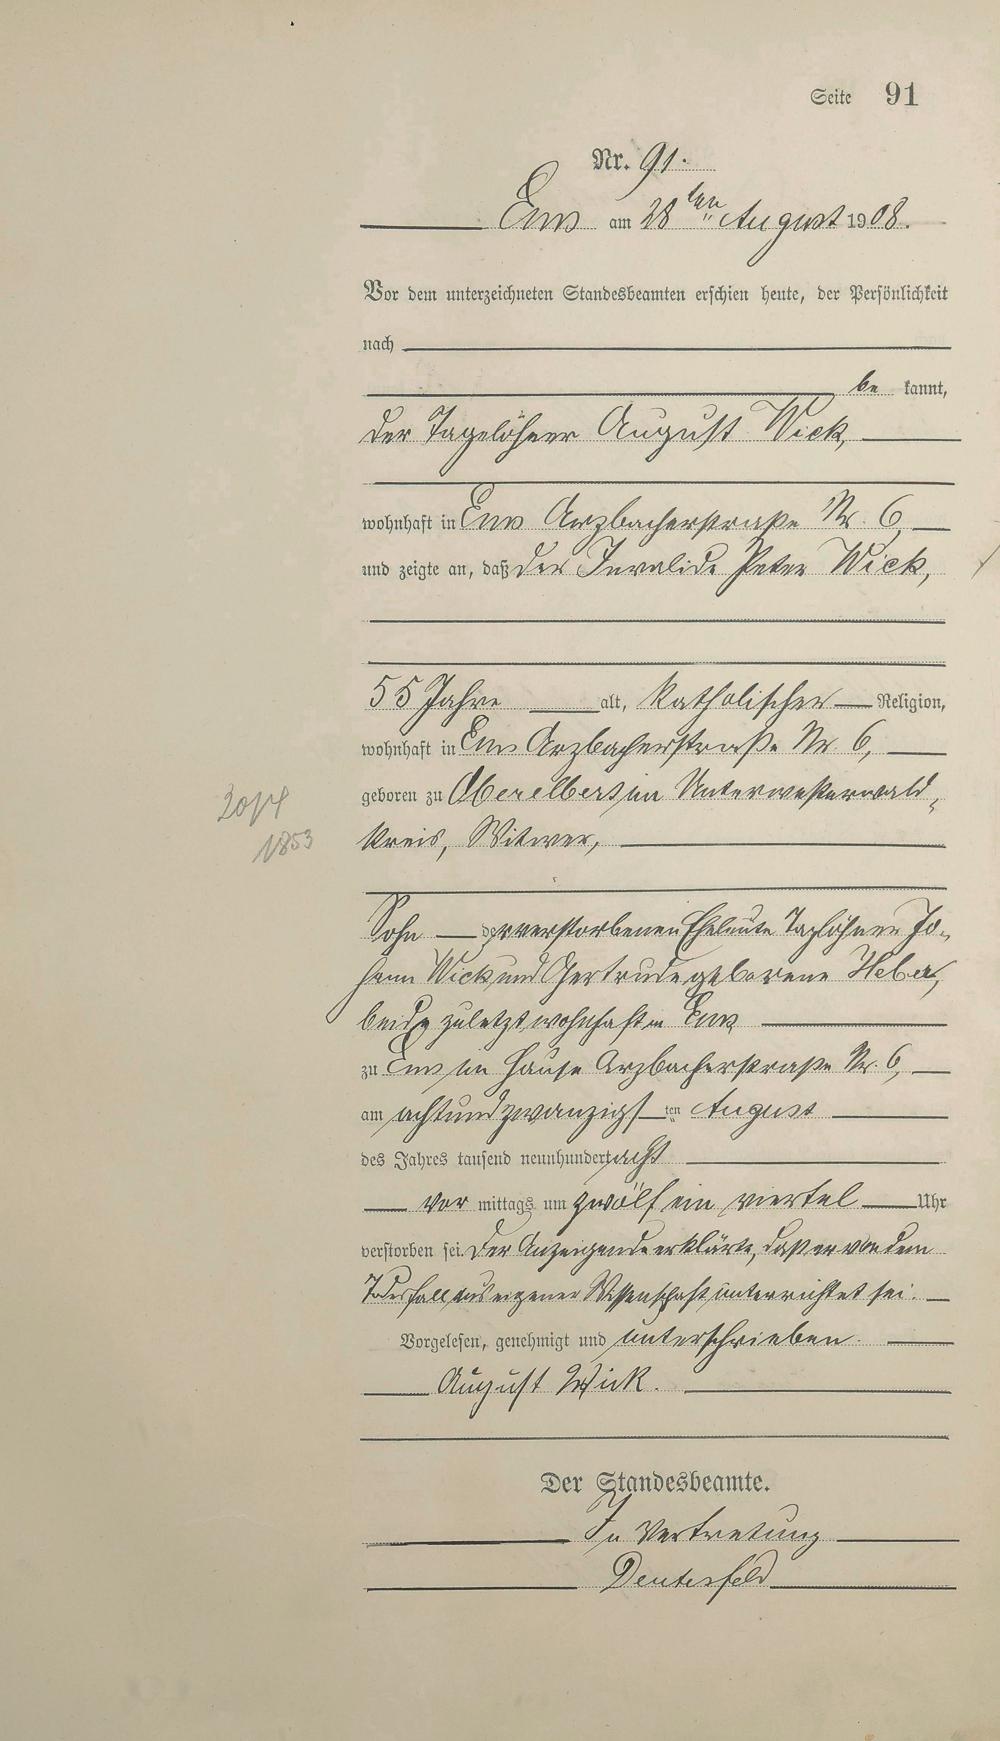 Seite 91
Nr. 91.
Ems am 28ten August 1908.
Vor dem unterzeichneten Standesbeamten erschien heute, der Persönlichkeit
nach
be kannt,
der Tagelöhner August Wick,
wohnhaft in Ems Arzbacherstraße Nr. 6,
und zeigte an, daß der Invalide Peter Wick,
55 Jahre alt, katholischer Religion,
wohnhaft in Ems Arzbacherstraße Nr. 6,
geboren zu Oberelbert im Unterwesterwald-
kreis, Witwer,
Sohn der verstorbenen Eheleute Taglöhner Jo-
hann Wick und Gertrude geborene
beide zuletzt wohnhaft in Ems
zu Ems im Hause Arzbacherstraße Nr. 6,
am achtundzwanzigsten August
des Jahres tausend neunhundert acht
vor mittags um zwölf ein viertel Uhr
verstorben sei. Der Anzeigende erklärte, daß er von dem
Todesfall aus eigener Wissenschaft unterrichtet sei.
Vorgelesen, genehmigt und unterschrieben.
August Wick.
Der Standesbeamte.
In Vertretung
1853